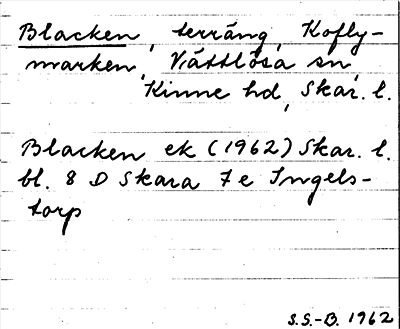 Blacken, terräng, Kofly-
marken, Vättlösa sn,
Kinne hd, Skar. l.
Blacken ek (1962) Skar. l.
bl. 8 D Skara 7 e Ingels-
torp
S.S.-B. 1962